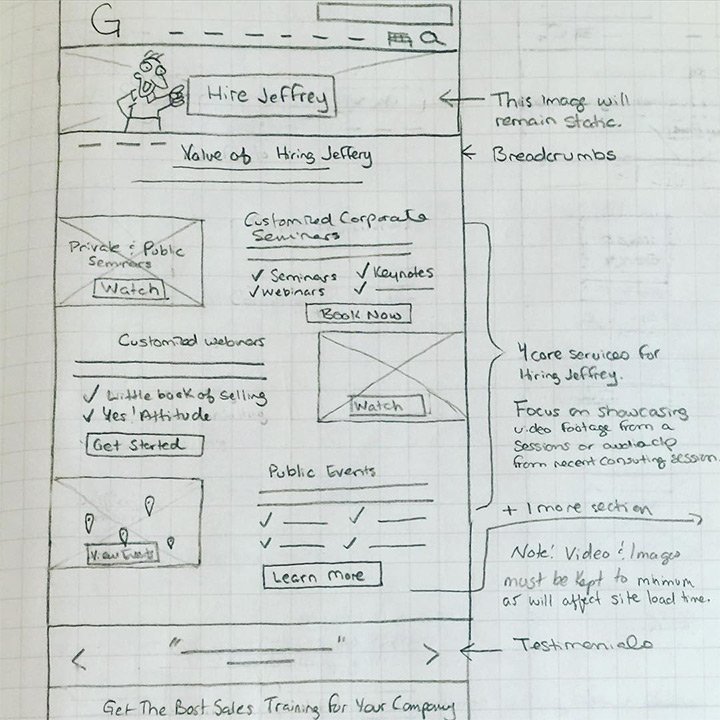 G
Hire Jeffrey
This Image will
remain static.
Value of Hiring Jeffery
Breadcrumbs
Private & Public
Seminars
Watch
Customized Corporate
Seminars
✓ Seminars ✓ Keynotes
✓ Webinars ✓
Book Now
Customized webinars
✓ Little book of selling
✓ Yes! Attitude
Get Started
Watch
4 core services for
Hiring Jeffrey.
Focus on showcasing
video footage from a
sessions or audio clip
from recent consulting session.
Public Events
✓ ✓
✓ ✓
View Events
Learn More
+ 1 more section
Note! Video & Images
must be kept to minimum
as will affect site load time.
< " " >
Testimonials
Get The Best Sales Training For Your Company